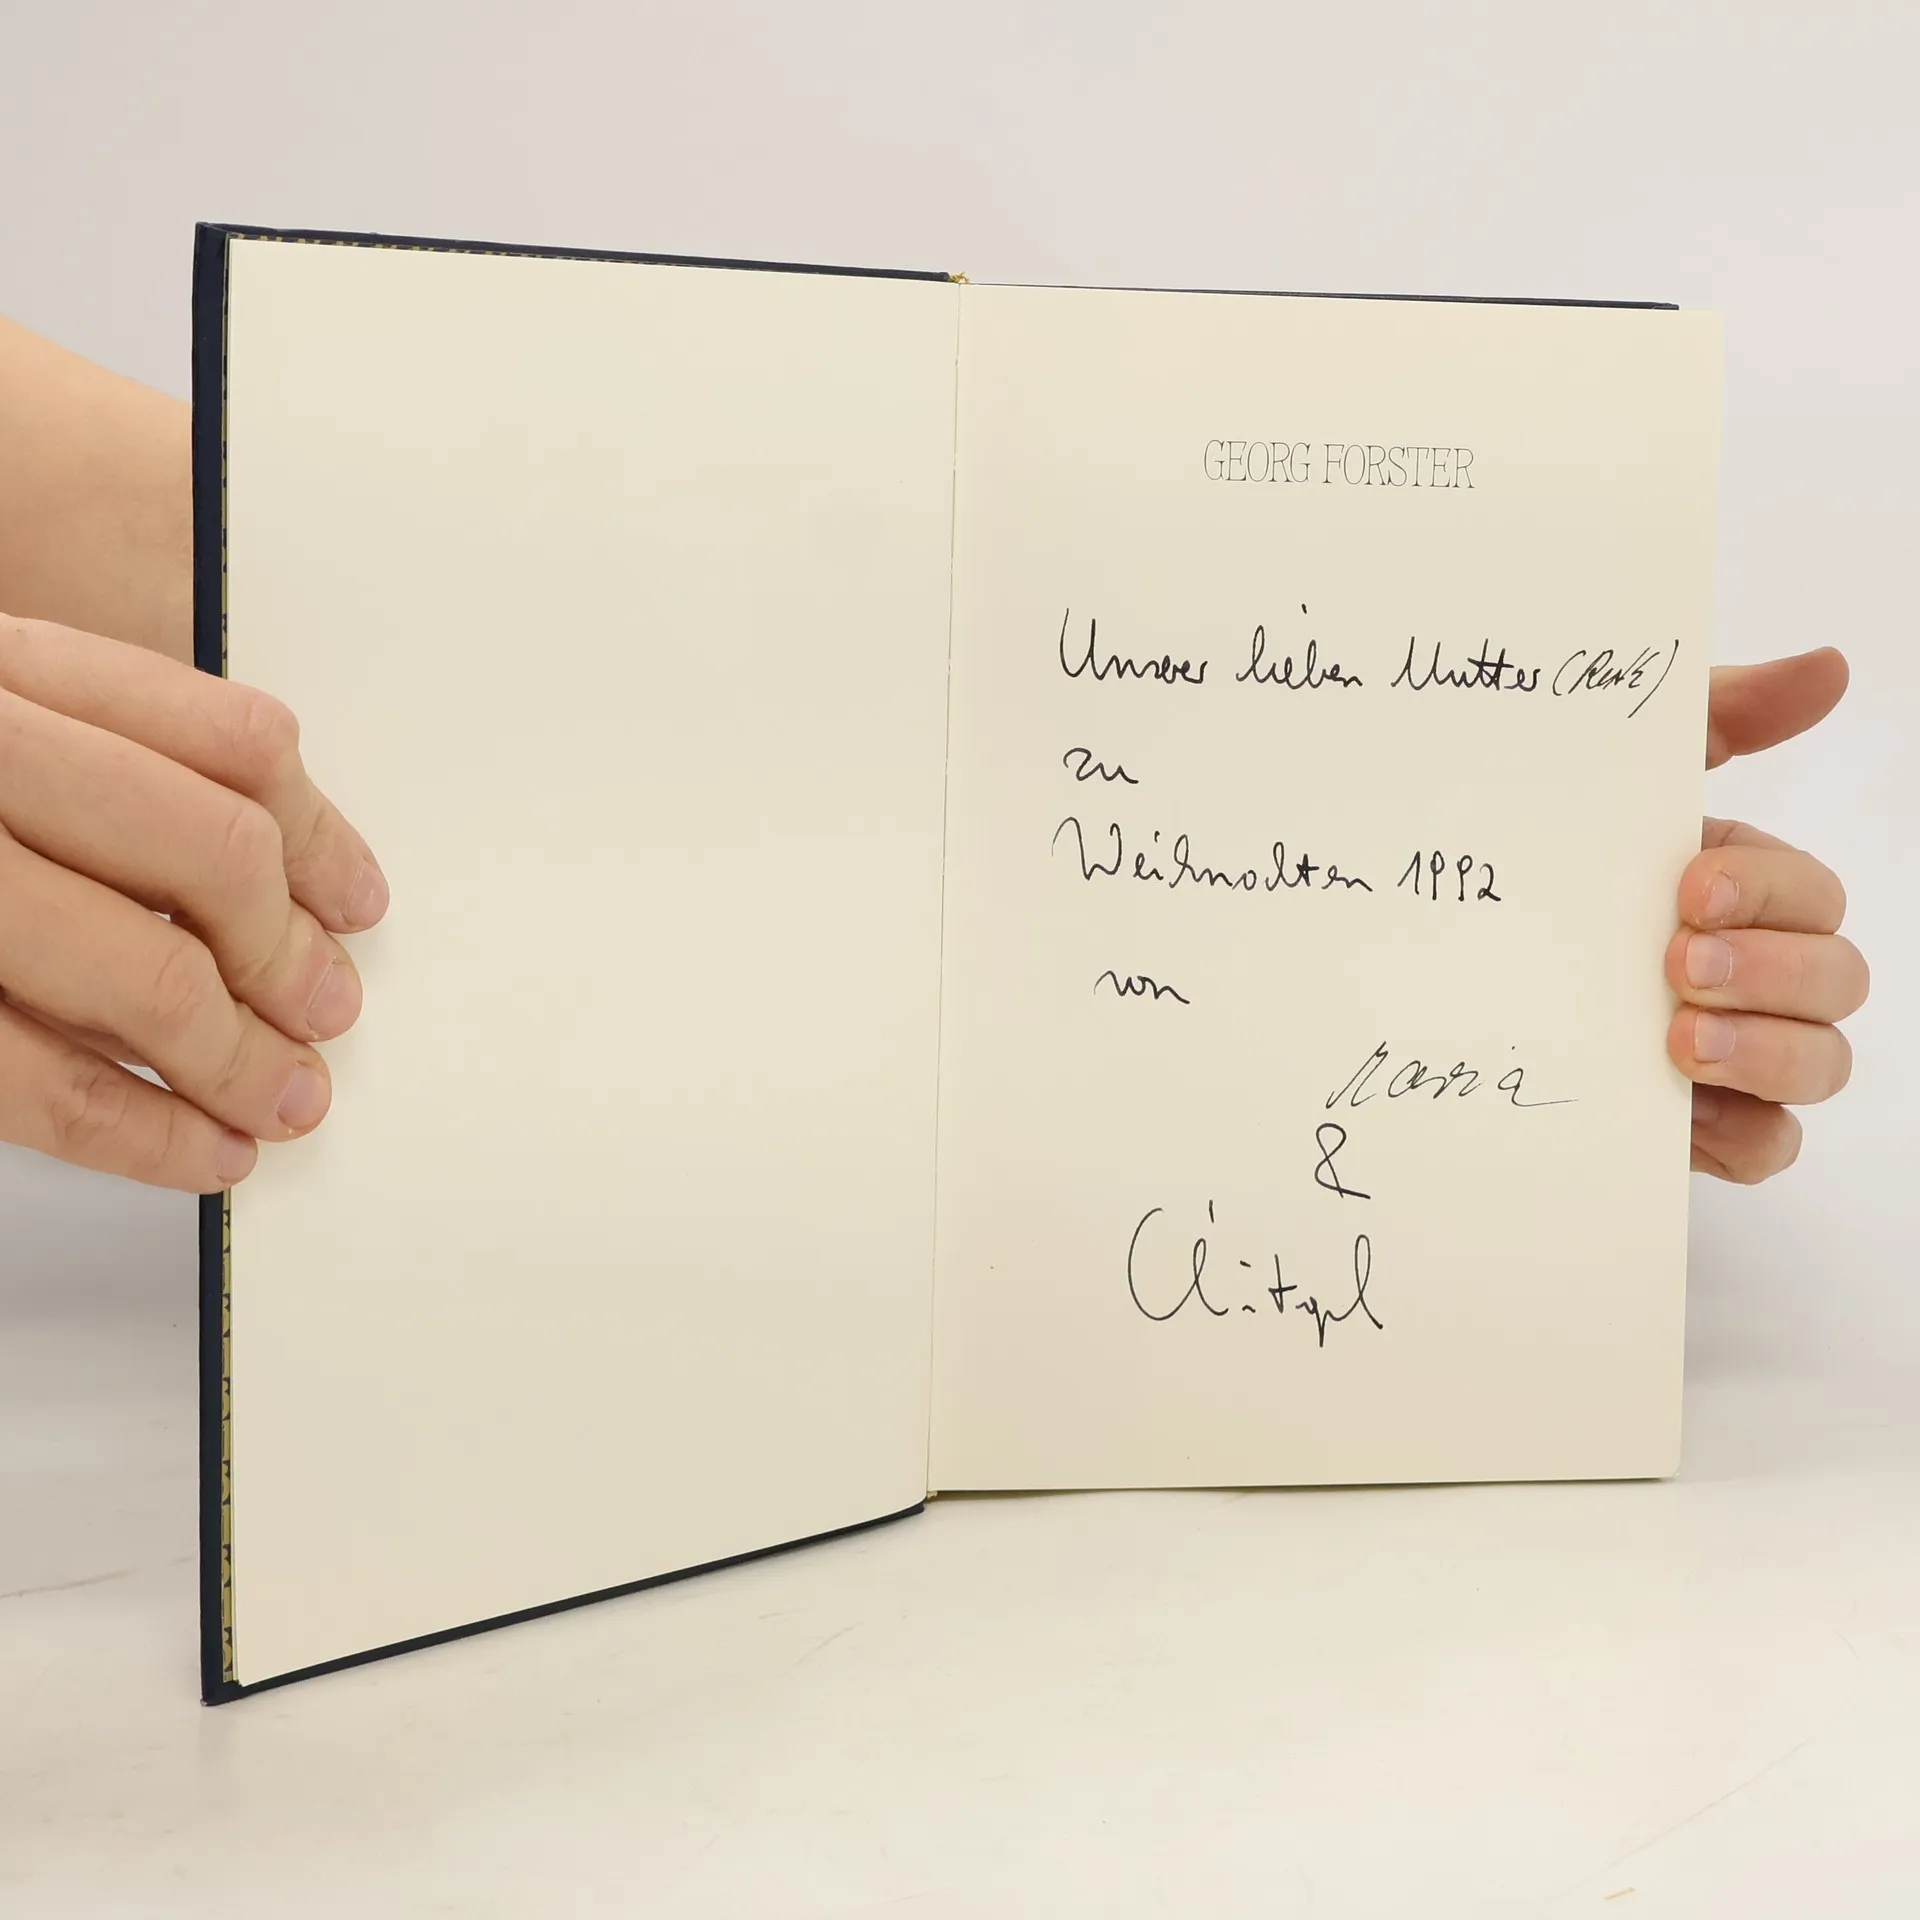 GEORG FORSTER
Unserer lieben Mutter
zu
Weihnachten 1992
von
Maria
&